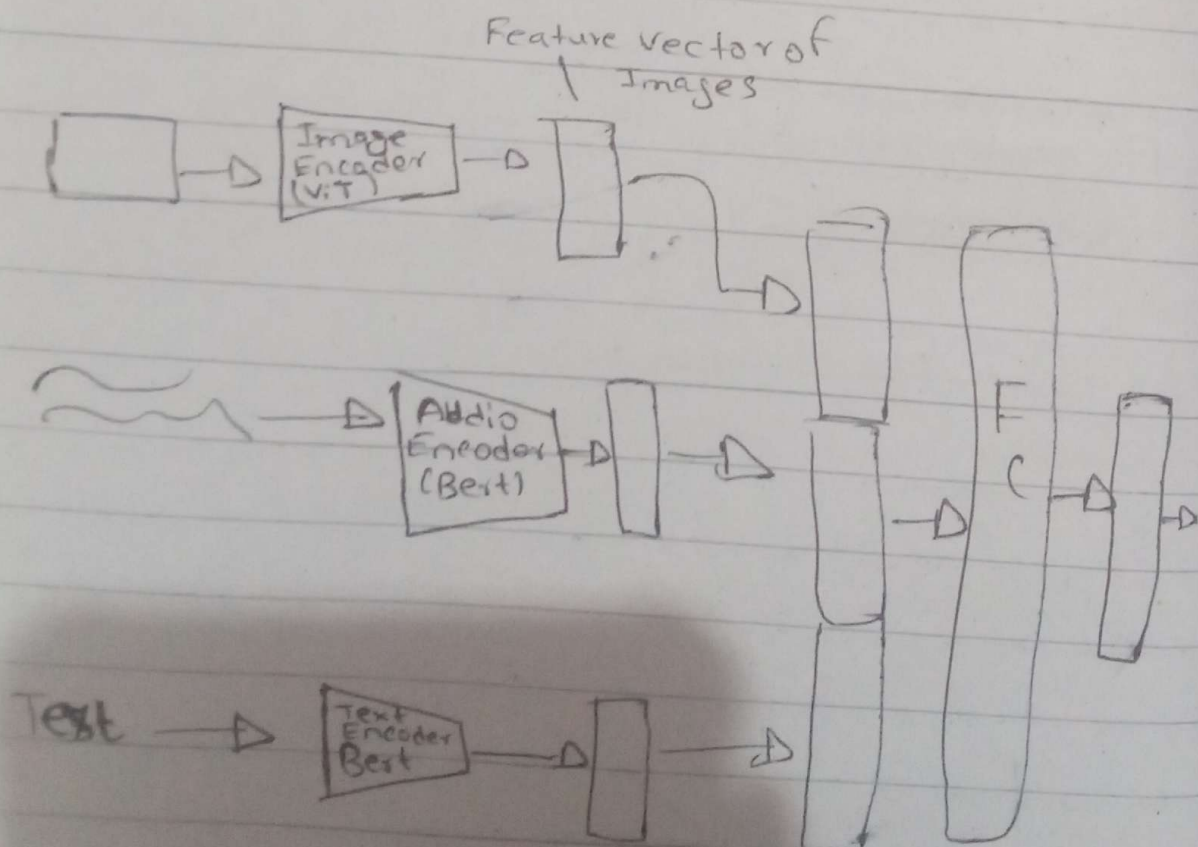 Feature vector of
Images
Image
Encoder
(ViT)
Audio
Encoder
(Bert)
F
C
Text
Text
Encoder
Bert